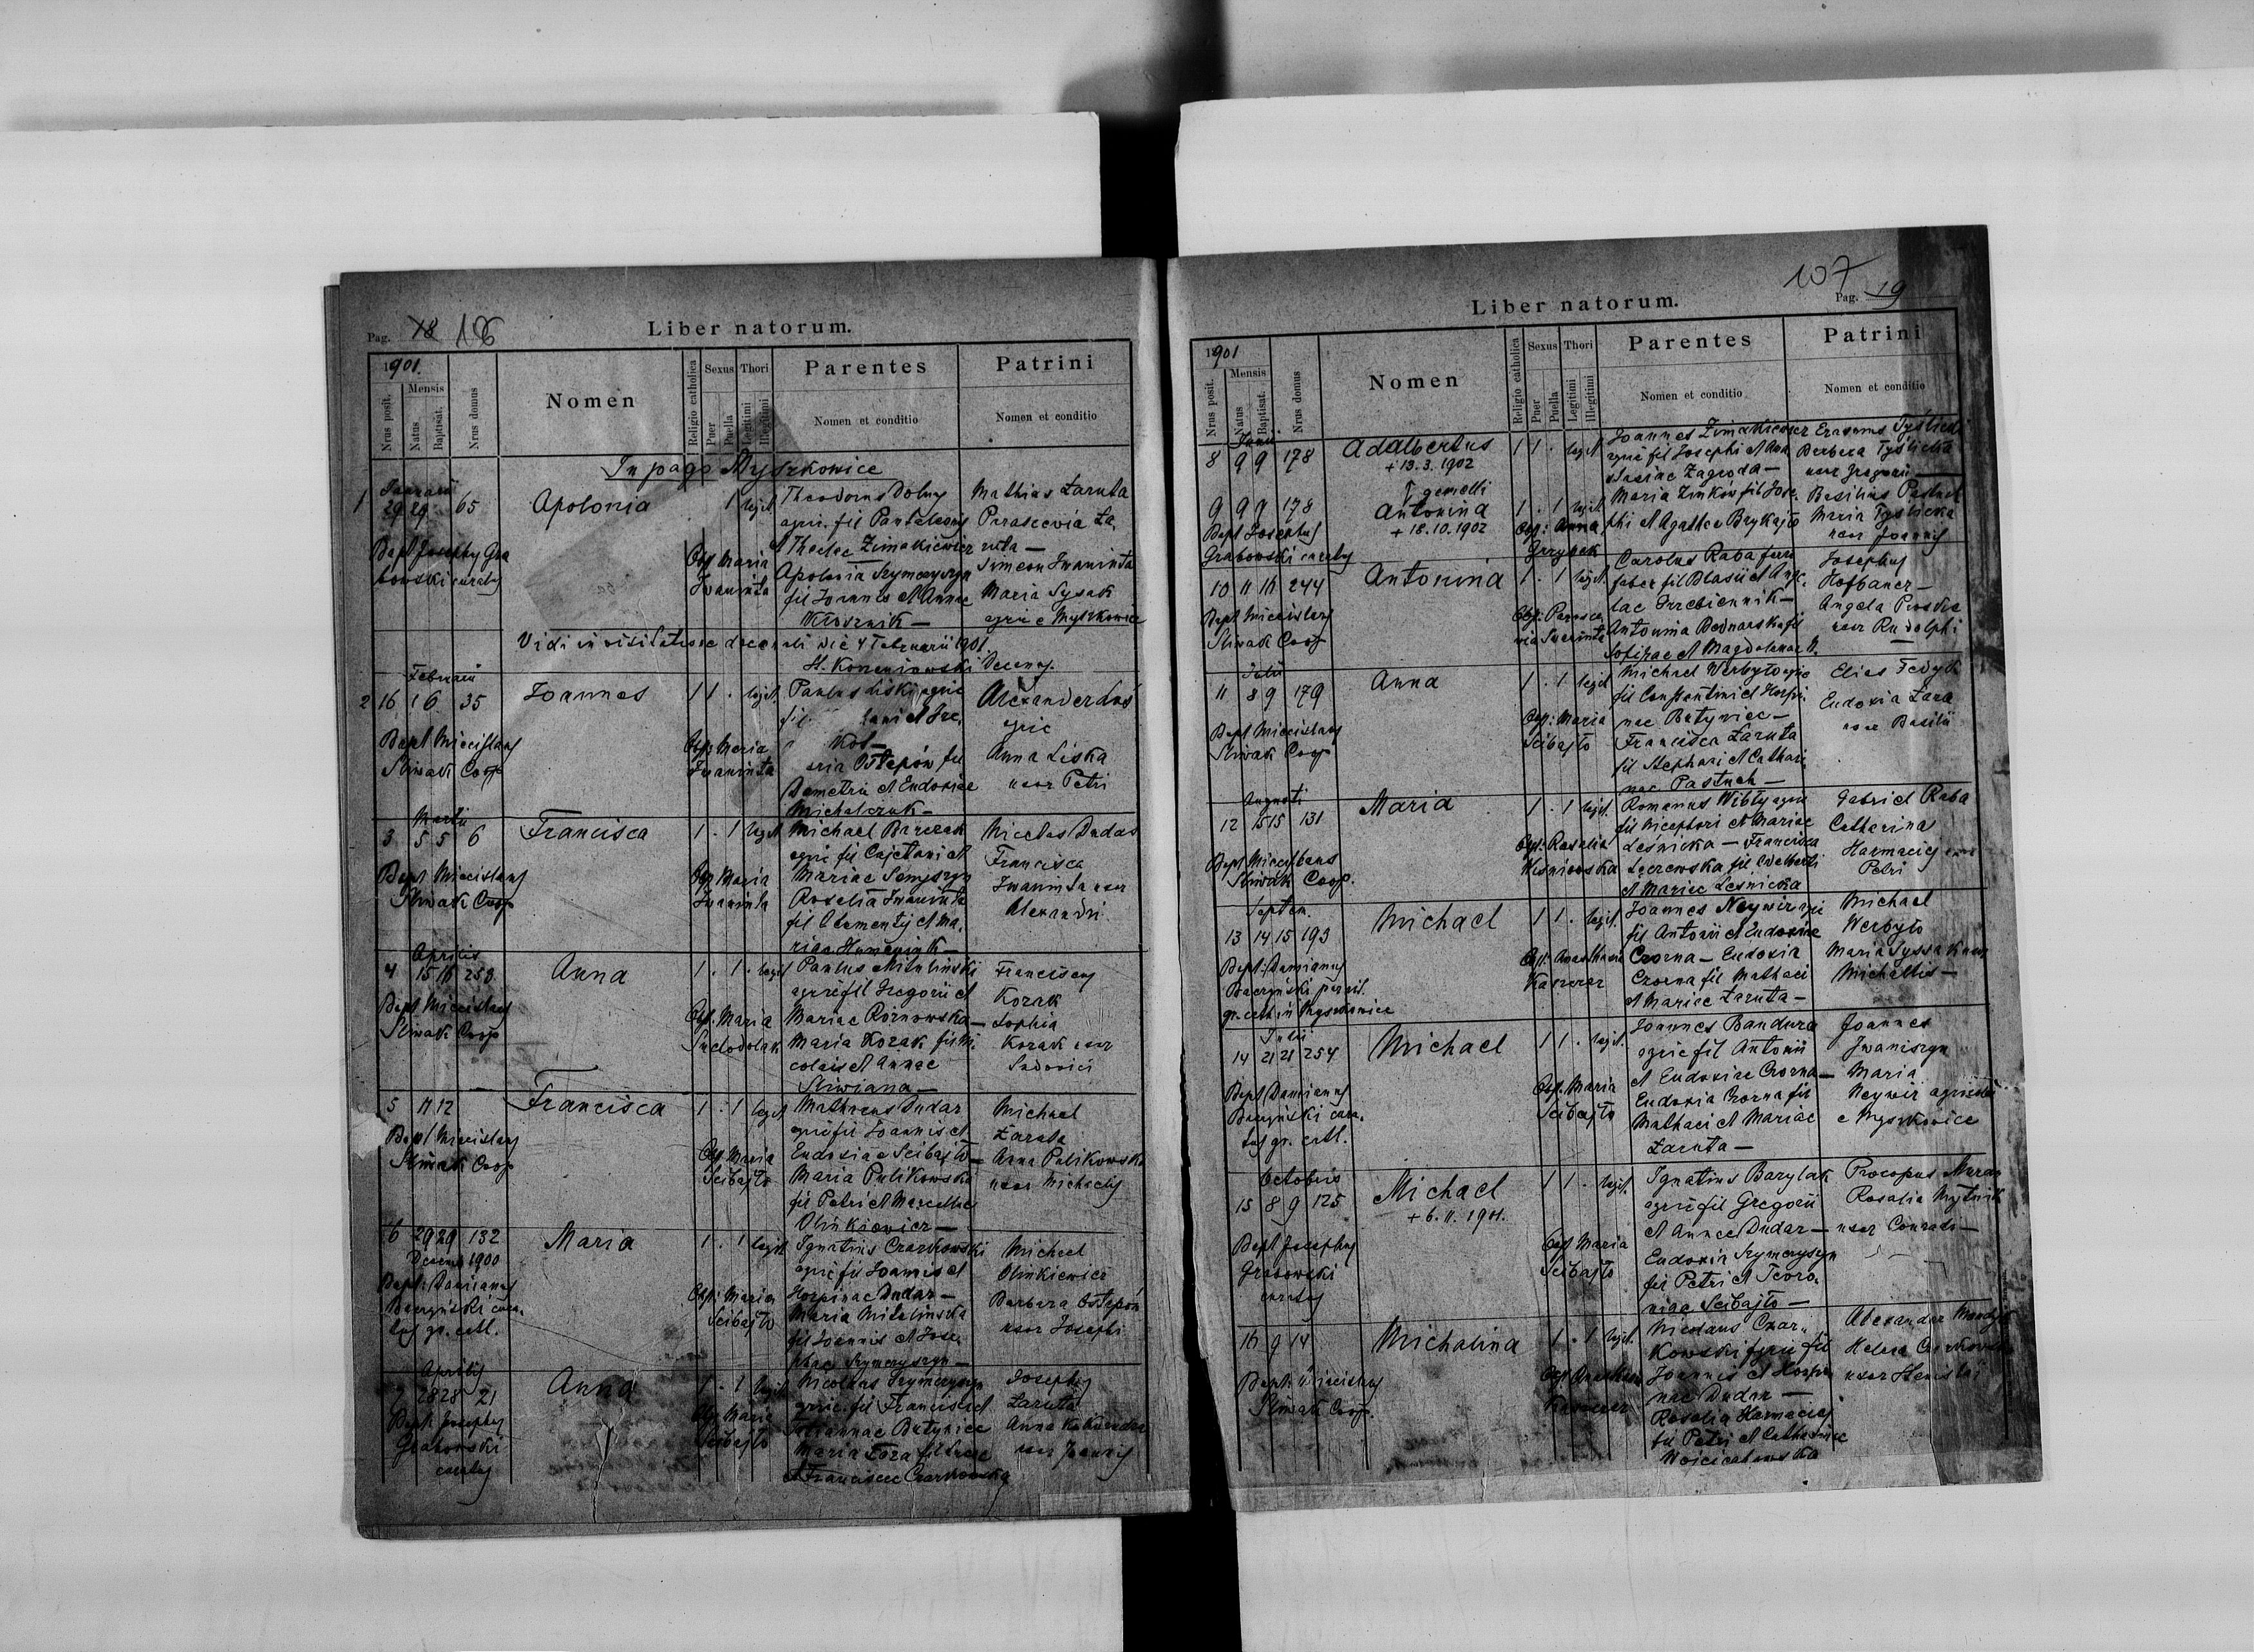 Pag. 18 106
Liber natorum.
1901.
Mensis
Nrus posit.
Natus
Baptisat.
Nrus domus
Nomen
Religio catholica
Sexus
Puer
Puella
Thori
Legitimi
Illegitimi
Parentes
Nomen et conditio
Patrini
Nomen et conditio
In pago Myszkowice
Januarii
1 29 29 65 Apolonia 1 legit.
Bapt Josephus Gra
bowski curatus
Obst Maria
Iwaninta
Theodorus Dolny
agric. fil Pantaleonis
et Theclae Zimakiewicz
Apolonia Szymczyszyn
fil Joannis et Annae
Mathias Łaruta
Parascevia Ła
ruta —
Simeon Iwaninta
Maria Sysak
agric e Myszkowice
Vidi in visitatione decanali die 4 Februarii 1901.
H. Konemiowski Decanus
Februarii
2 16 16 35 Joannes 1 1 . legit.
Bapt Miecislaus
Sliwak Coop
Obst Maria
Iwaninta
Paulus Liski agric
fil
Ostapów fil
Demetrii et Eudoxiae
Michalczuk —
Alexander Łoś
agric
Anna Liska
uxor Petri
Martii
3 5 5 6 Francisca 1 . 1 legit
Bapt Miecislaus
Sliwak Coop
Obst Maria
Iwaninta
Michael Barczak
agric fil Cajetani et
Mariae Semyszyn
Rosalia Iwaninta
fil Clementis et Ma
riae
Nicetas Dudar
Francisca
Iwaninta uxor
Alexandri
Aprilis
4 15 16 253 Anna 1 . 1 . legit
Bapt Miecislaus
Sliwak Coop
Obst. Maria
Paulus Mitulinski
agric fil Gregorii et
Mariae Rożnowska —
Maria Kozak fil Ni
colai et Annae
Sliwiana —
Franciscus
Kozak
Sophia
Kozak uxor
Ludovici
5 11 12 Francisca 1 . 1 legit
Bapt Miecislaus
Sliwak Coop
Obst Maria
Scibajło
Mathaeus Dudar
agric fil Joannis et
Eudoxiae Scibajło —
Maria Pulikowska
fil Petri et Marcellae
Olinkiewicz —
Michael
Łaruta
Anna Pulikowska
uxor Michaelis
6 29 29 132 Maria 1 . 1 legit
Decemb 1900
Bapt: Damianus
Baczyński cura
tus gr. cath.
Obst: Maria
Scibajło
Ignatius Czarkowski
agric fil Joannis et
Horpinae Dudar —
Maria Mitulinska
fil Joannis et Jose
phae Szymczyszyn —
Michael
Olinkiewicz
Barbara Ostapow
uxor Josephi
Aprilis
7 28 28 21 Anna 1 . 1 legit
Bapt: Josephus
Grabowski
curatus
Obst Maria
Scibajło
Nicolaus Szymczyszyn
agric. fil Francisci et
Mariannae Batyniec
Maria
et Franciscae Czarkowska
Josephus
Łaruta
Anna
uxor Joannis
107
Pag. 19
Liber natorum.
1901
Mensis
Nrus posit.
Natus
Baptisat.
Nrus domus
Nomen
Religio catholica
Sexus
Puer
Puella
Thori
Legitimi
Illegitimi
Parentes
Nomen et conditio
Patrini
Nomen et conditio
Junii
8 9 9 178 Adalbertus 1 1 . legit
+ 13.3.1902
gemelli
9 9 9 178 Antonina 1 . 1 legit
+ 18.10.1902
Bapt Josephus
Grabowski curatus
Obst: Anna
Grzybek
Joannes Zimakiewicz
agric fil Josephi et Ana
stasiae Zagroda —
Maria Zinków fil Jose
phi et Agathae Brykajło
Erasmus Tyślicki
Barbara Tyślicka
uxor Gregorii
Basilius Pastuch
Maria Tyślicka
uxor Joannis
10 11 16 244 Antonina 1 . 1 legit.
Bapt Miecislaus
Sliwak Coop
Carolus Raba ferri
faber fil Blasii et Ange
lae Grzebiennik —
Antonina Bednarska fil
Josephus
Hofbauer —
Angela
uxor Rudolphi
Julii
11 8 9 179 Anna 1 . 1 legit
Bapt Miecislaus
Sliwak Coop
Obst: Maria
Scibajło
Michael Werbyło agric
fil Constantini et Horpi
nae Batyniec —
Francisca Łaruta
fil Stephani et Cathari
nae Pastuch —
Elias Fedyk
Eudoxia Łara
uxor Basilii
Augusti
12 15 15 131 Maria 1 . 1 legit.
Sliwak Coop.
Obst: Rosalia
Wiśniowska
Romanus Wibły agric
fil Nicephori et Mariae
Leśnicka — Francisca
fil Adalberti
et Mariae Leśnicka
Gabriel Raba
Catharina
Harmaciej uxor
Petri
Septem.
13 14 15 193 Michael 1 1 . legit.
Bapt: Damianus
Baczyński
gr. cath in Myszkowice
Obst: Anastasia
Kaszczar
Joannes Neywir agric
fil Antonii et Eudoxiae
Czorna — Eudoxia
Czorna fil Mathaei
et Mariae Łaruta —
Michael
Werbyło
Maria Syssak uxor
Michaelis —
Julii
14 21 21 254 Michael 1 1 . legit.
Bapt Damianus
Baczyński cura
tus gr. cath.
Obst. Maria
Scibajło
Joannes Bandura
agric fil Antonii
et Eudoxiae Czorna —
Eudoxia Czorna fil
Mathaei et Mariae
Łaruta —
Joannes
Iwaniszyn
Maria
Neywir
e Myszkowice
Octobris
15 8 9 125 Michael 1 1 . legit.
+ 6.11.1901.
Bapt Josephus
Grabowski
curatus
Obst Maria
Scibajło
Ignatius Barylak
agric fil Gregorii
et Annae Dudar —
Eudoxia Szymczyszyn
fil Petri et Tewro
niae Scibajło —
Procopus
Rosalia Mytnik
uxor Conradi —
16 9 14 Michalina 1 . 1 legit.
Bapt: Miecislaus
Sliwak Coop.
Nicolaus Czar
kowski agric fil
Joannis et Horpi
nae Dudar —
Rosalia Harmaciej
fil Petri et Catharinae
Alexander
Helena Czarkowska
uxor Stanislai